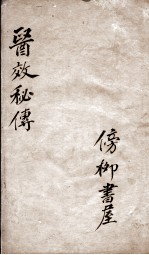 醫效秘傳
傍柳書屋